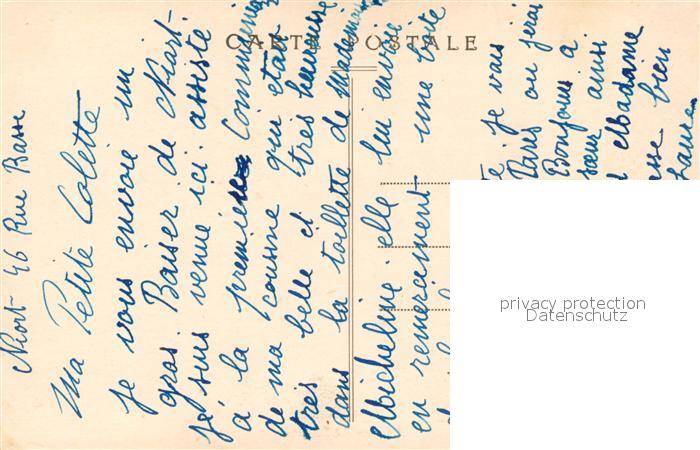 CARTE POSTALE
Niort 46 Rue Basse
Ma Petite Colette
je vous envoie un
gros Baiser de Niort.
je suis venue ici assiste
a la premiere Communion
de ma cousine qui etait
tres belle et tres heureuse
dans la toillette de Mademoi
Micheline elle lui envoie
en remerciment une boite
je vais
Paris ou j'irai
Bonjour a
sœur ainsi
Madame
bien
privacy protection
Datenschutz